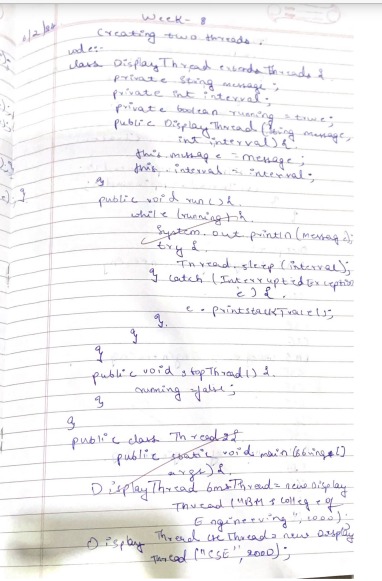 Week - 8
Creating two threads.
code:-
class DisplayThread extends Threads {
private String message;
private int interval;
private boolean running = true;
public DisplayThread (String message,
int interval) {
this.message = message;
this.interval = interval;
}
public void run() {
while (running) {
System.out.println (message);
try {
Thread.sleep (interval);
} catch (Interrupted Exception
e) {
e.printStackTrace();
}
}
}
public void stopThread() {
running = false;
}
}
public class Thread2 {
public static void main (String []
args) {
DisplayThread bmsThread = new Display
Thread ("BMS College of
Engineering", 1000);
Display Thread cseThread = new Display
Thread ("CSE", 2000);